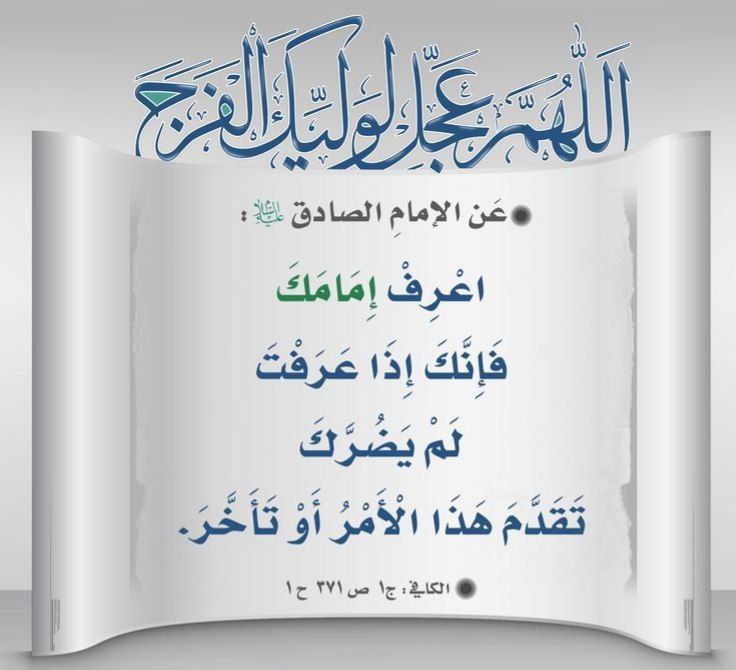 اَللّٰهُمَّ عَجِّلْ لِوَلِيِّكَ الْفَرَجَ
عَن الإمامِ الصادق عليه السلام :
اعْرِفْ إِمَامَكَ
فَإِنَّكَ إِذَا عَرَفْتَ
لَمْ يَضُرَّكَ
تَقَدَّمَ هَذَا الْأَمْرُ أَوْ تَأَخَّرَ.
الكافي: ج١ ص ٣٧١ ح ١